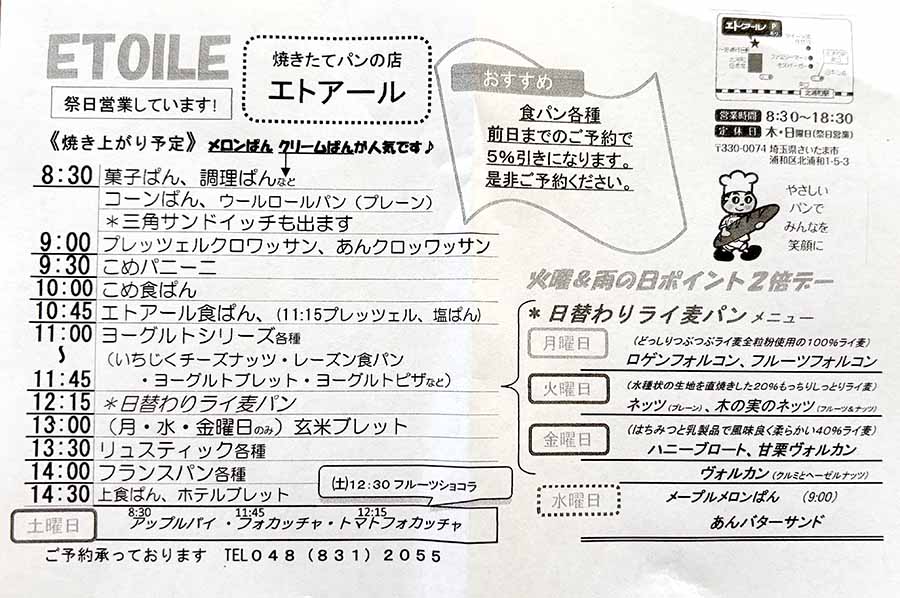 ETOILE
祭日営業しています!
焼きたてパンの店
エトアール
おすすめ
食パン各種
前日までのご予約で
5%引きになります。
是非ご予約ください。
エトアール
北浦和駅
営業時間 8:30～18:30
定休日 木・日曜日(祭日営業)
〒330-0074 埼玉県さいたま市
浦和区北浦和1-5-3
やさしい
パンで
みんなを
笑顔に
《焼き上がり予定》 メロンぱん クリームぱんが人気です♪
8:30 菓子ぱん、調理ぱんなど
コーンぱん、ウールロールパン(プレーン)
＊三角サンドイッチも出ます
9:00 プレッツェルクロワッサン、あんクロッワッサン
9:30 こめパニーニ
10:00 こめ食ぱん
10:45 エトアール食ぱん、(11:15プレッツェル、塩ぱん)
11:00 ヨーグルトシリーズ各種
～ (いちじくチーズナッツ・レーズン食パン
11:45 ・ヨーグルトブレット・ヨーグルトピザなど)
12:15 ＊日替わりライ麦パン
13:00 (月・水・金曜日のみ) 玄米ブレット
13:30 リュスティック各種
14:00 フランスパン各種
14:30 上食ぱん、ホテルブレット
(土)12:30 フルーツショコラ
土曜日
8:30 11:45 12:15
アップルパイ ・フォカッチャ・トマトフォカッチャ
ご予約承っております TEL048 (831) 2055
火曜&雨の日ポイント2倍デー
＊日替わりライ麦パン メニュー
月曜日 (どっしりつぶつぶライ麦全粒粉使用の100%ライ麦)
ロゲンフォルコン、フルーツフォルコン
火曜日 (水種状の生地を直焼きした20%もっちりしっとりライ麦)
ネッツ(プレーン)、木の実のネッツ(フルーツ&ナッツ)
金曜日 (はちみつと乳製品で風味良く柔らかい40%ライ麦)
ハニーブロート、甘栗ヴォルカン
ヴォルカン(クルミとヘーゼルナッツ)
水曜日 メープルメロンぱん (9:00)
あんバターサンド